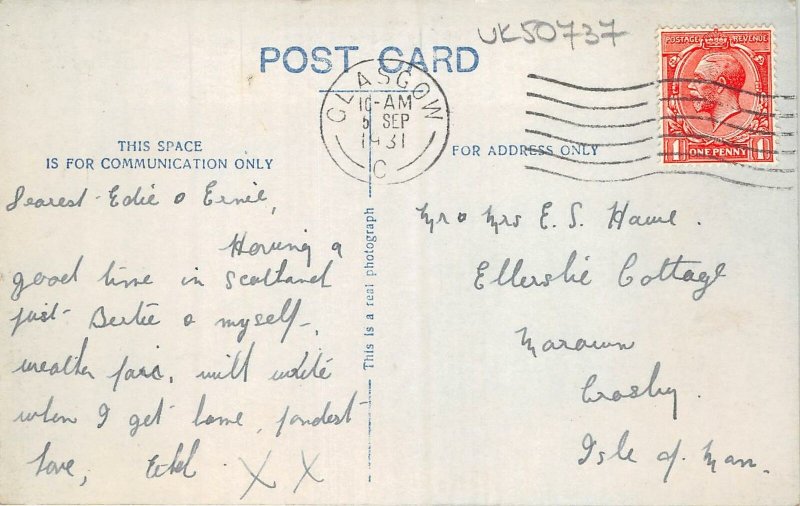 UK50737
POST CARD
POSTAGE REVENUE
ONE PENNY
1 1
GLASGOW
10-AM
5 SEP
1931
C
THIS SPACE
IS FOR COMMUNICATION ONLY
FOR ADDRESS ONLY
This is a real photograph
Dearest Edie & Ernie,
Having a
good time in Scotland
just Bertie & myself,
weather fair, will write
when I get home, fondest
love, Ethel X X
Mr & Mrs E. S.
Ellerslie Cottage
Marown
Crosby.
Isle of Man.